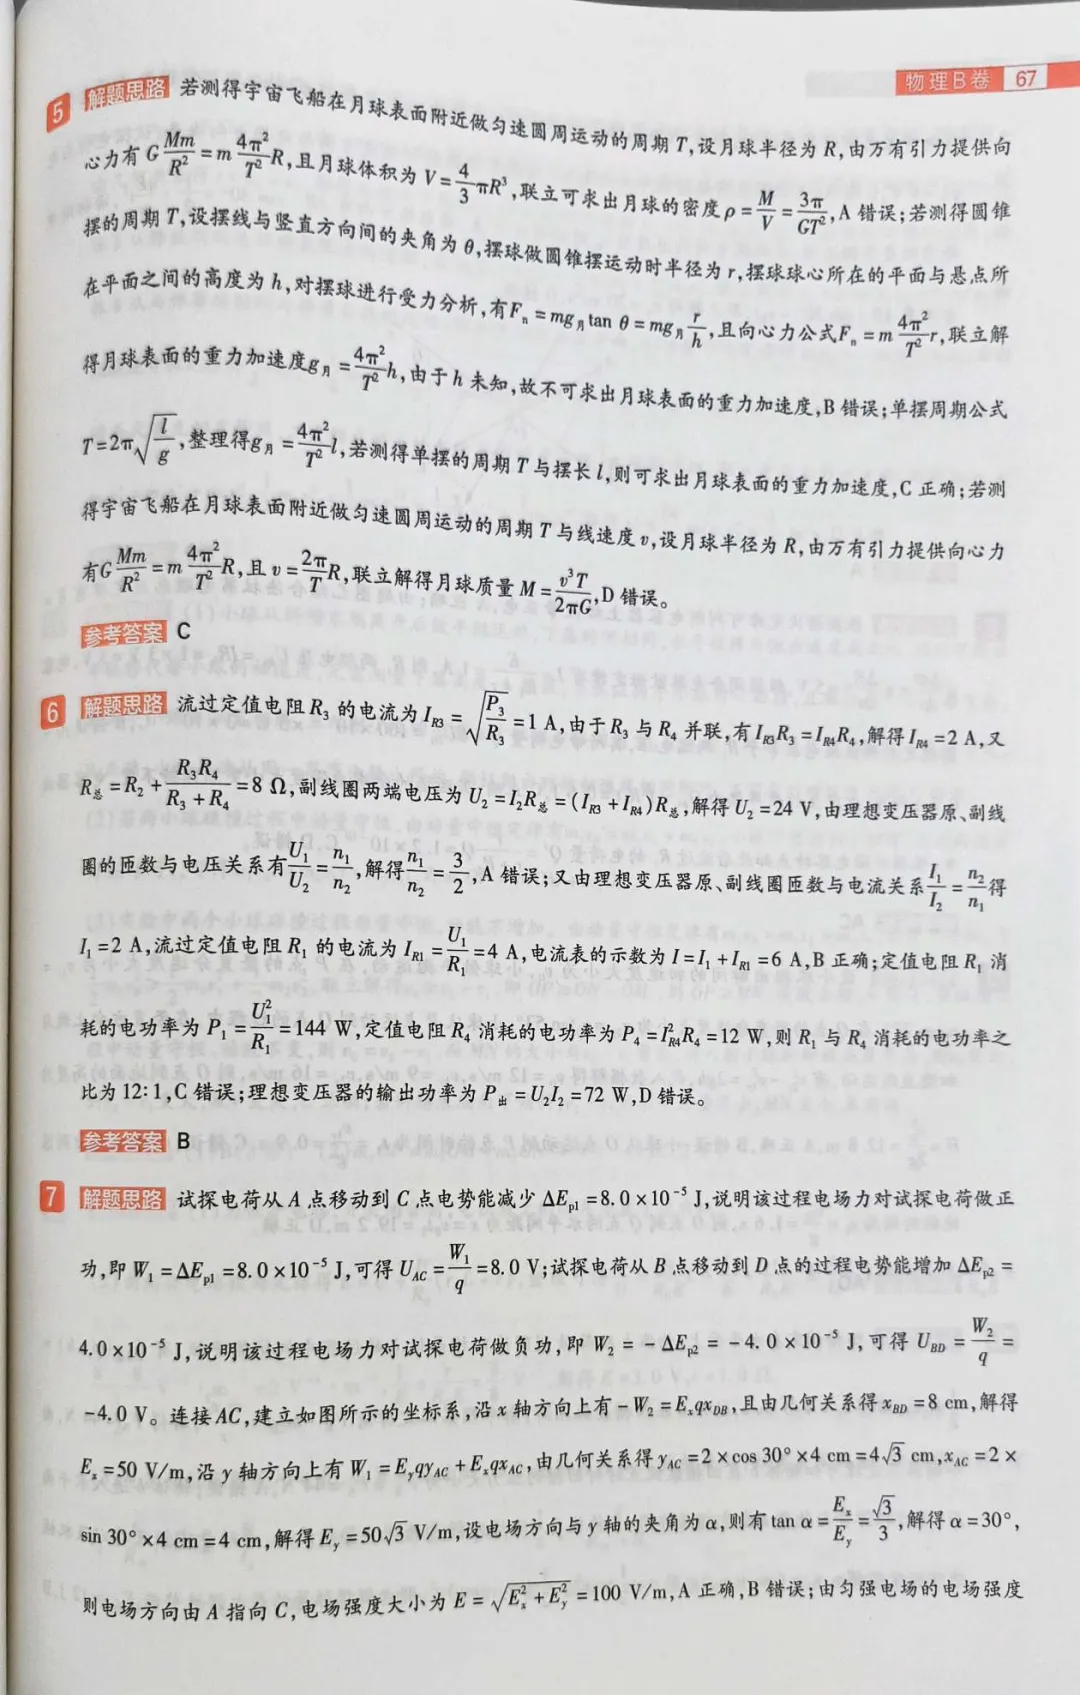 物理B卷 67
5 解题思路 若测得宇宙飞船在月球表面附近做匀速圆周运动的周期 T,设月球半径为 R,由万有引力提供向
心力有 G\frac{Mm}{R^2}=m\frac{4π^2}{T^2}R,且月球体积为 V=\frac{4}{3}πR^3,联立可求出月球的密度 ρ=\frac{M}{V}=\frac{3π}{GT^2},A 错误;若测得圆锥
摆的周期 T,设摆线与竖直方向间的夹角为 θ,摆球做圆锥摆运动时半径为 r,摆球球心所在的平面与悬点所
在平面之间的高度为 h,对摆球进行受力分析,有F_n=mg_月tan θ=mg_月\frac{r}{h},且向心力公式F_n=m\frac{4π^2}{T^2}r,联立解
得月球表面的重力加速度g_月=\frac{4π^2}{T^2}h,由于 h 未知,故不可求出月球表面的重力加速度,B 错误;单摆周期公式
T=2π\sqrt{\frac{l}{g}},整理得g_月=\frac{4π^2}{T^2}l,若测得单摆的周期 T 与摆长 l,则可求出月球表面的重力加速度,C 正确;若测
得宇宙飞船在月球表面附近做匀速圆周运动的周期 T 与线速度 v,设月球半径为 R,由万有引力提供向心力
有G\frac{Mm}{R^2}=m\frac{4π^2}{T^2}R,且 v=\frac{2π}{T}R,联立解得月球质量 M=\frac{v^3T}{2πG},D 错误。
参考答案 C
6 解题思路 流过定值电阻 R_3 的电流为 I_{R3}=\sqrt{\frac{P_3}{R_3}}=1 A,由于 R_3 与 R_4 并联,有 I_{R3}R_3=I_{R4}R_4,解得 I_{R4}=2 A,又
R_总=R_2+\frac{R_3R_4}{R_3+R_4}=8 Ω,副线圈两端电压为 U_2=I_2R_总=(I_{R3}+I_{R4})R_总,解得 U_2=24 V,由理想变压器原、副线
圈的匝数与电压关系有\frac{U_1}{U_2}=\frac{n_1}{n_2},解得\frac{n_1}{n_2}=\frac{3}{2},A 错误;又由理想变压器原、副线圈匝数与电流关系\frac{I_1}{I_2}=\frac{n_2}{n_1}得
I_1=2 A,流过定值电阻 R_1 的电流为 I_{R1}=\frac{U_1}{R_1}=4 A,电流表的示数为 I=I_1+I_{R1}=6 A,B 正确;定值电阻 R_1 消
耗的电功率为 P_1=\frac{U_1^2}{R_1}=144 W,定值电阻 R_4 消耗的电功率为 P_4=I_{R4}^2R_4=12 W,则 R_1 与 R_4 消耗的电功率之
比为 12:1,C 错误;理想变压器的输出功率为 P_出=U_2I_2=72 W,D 错误。
参考答案 B
7 解题思路 试探电荷从 A 点移动到 C 点电势能减少 ΔE_{p1}=8.0×10^{-5} J,说明该过程电场力对试探电荷做正
功,即 W_1=ΔE_{p1}=8.0×10^{-5} J,可得 U_{AC}=\frac{W_1}{q}=8.0 V;试探电荷从 B 点移动到 D 点的过程电势能增加 ΔE_{p2}=
4.0×10^{-5} J,说明该过程电场力对试探电荷做负功,即 W_2=-ΔE_{p2}=-4.0×10^{-5} J,可得 U_{BD}=\frac{W_2}{q}=
-4.0 V。连接AC,建立如图所示的坐标系,沿 x 轴方向上有 -W_2=E_xqx_{DB},且由几何关系得 x_{BD}=8 cm,解得
E_x=50 V/m,沿 y 轴方向上有 W_1=E_yqy_{AC}+E_xqx_{AC},由几何关系得 y_{AC}=2×cos 30°×4 cm=4\sqrt{3} cm,x_{AC}=2×
sin 30°×4 cm=4 cm,解得 E_y=50\sqrt{3} V/m,设电场方向与 y 轴的夹角为 α,则有 tan α=\frac{E_x}{E_y}=\frac{\sqrt{3}}{3},解得 α=30°,
则电场方向由 A 指向 C,电场强度大小为 E=\sqrt{E_x^2+E_y^2}=100 V/m,A 正确,B 错误;由匀强电场的电场强度